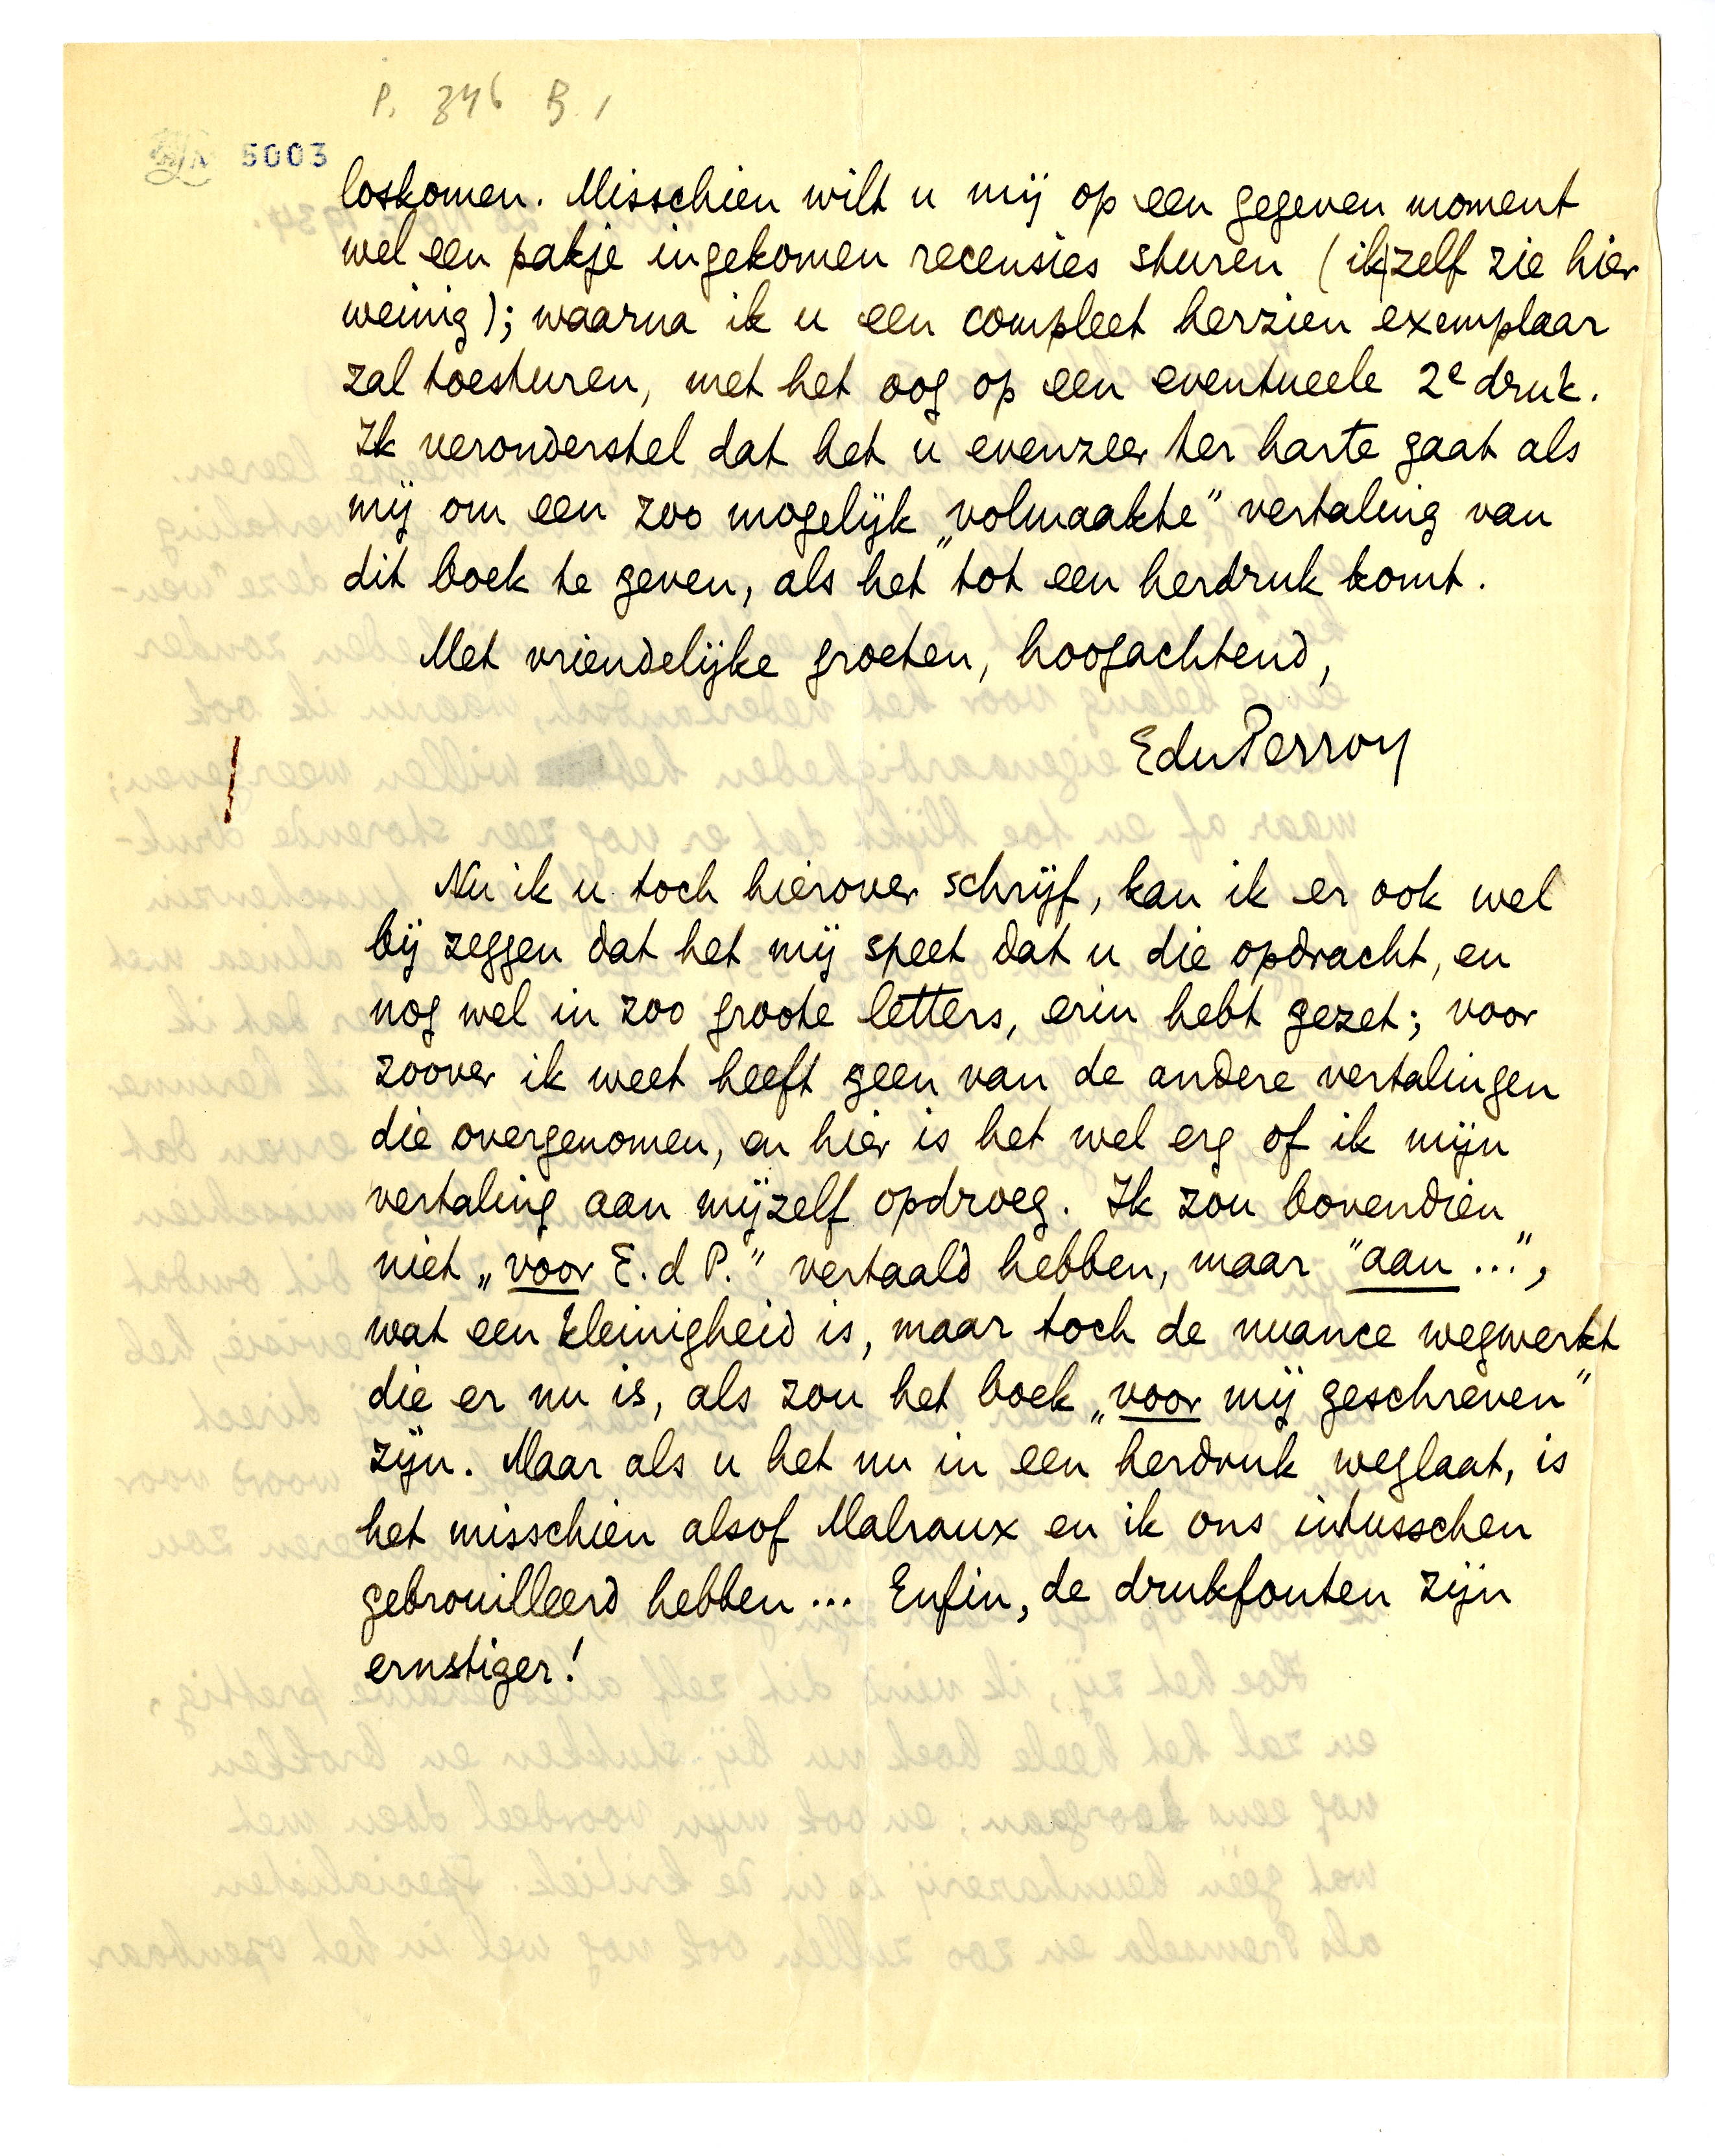 P. 346 B. 1
5003
loskomen. Misschien wilt u mij op een gegeven moment
wel een pakje ingekomen recensies sturen (ik zelf zie hier
weinig); waarna ik u een compleet herzien exemplaar
zal toesturen, met het oog op een eventueele 2e druk.
Ik veronderstel dat het u evenzeer ter harte gaat als
mij om een zoo mogelijk „volmaakte” vertaling van
dit boek te geven, als het tot een herdruk komt.
Met vriendelijke groeten, hoogachtend,
EduPerron
Nu ik u toch hierover schrijf, kan ik er ook wel
bij zeggen dat het mij speet dat u die opdracht, en
nog wel in zoo groote letters, erin hebt gezet; voor
zoover ik weet heeft geen van de andere vertalingen
die overgenomen, en hier is het wel erg of ik mijn
vertaling aan mijzelf opdroeg. Ik zou bovendien
niet „voor E. d P.” vertaald hebben, maar "aan ...",
wat een kleinigheid is, maar toch de nuance wegwerkt
die er nu is, als zou het boek „voor mij geschreven”
zijn. Maar als u het nu in een herdruk weglaat, is
het misschien alsof Malraux en ik ons intusschen
gebrouilleerd hebben... Enfin, de drukfouten zijn
ernstiger!